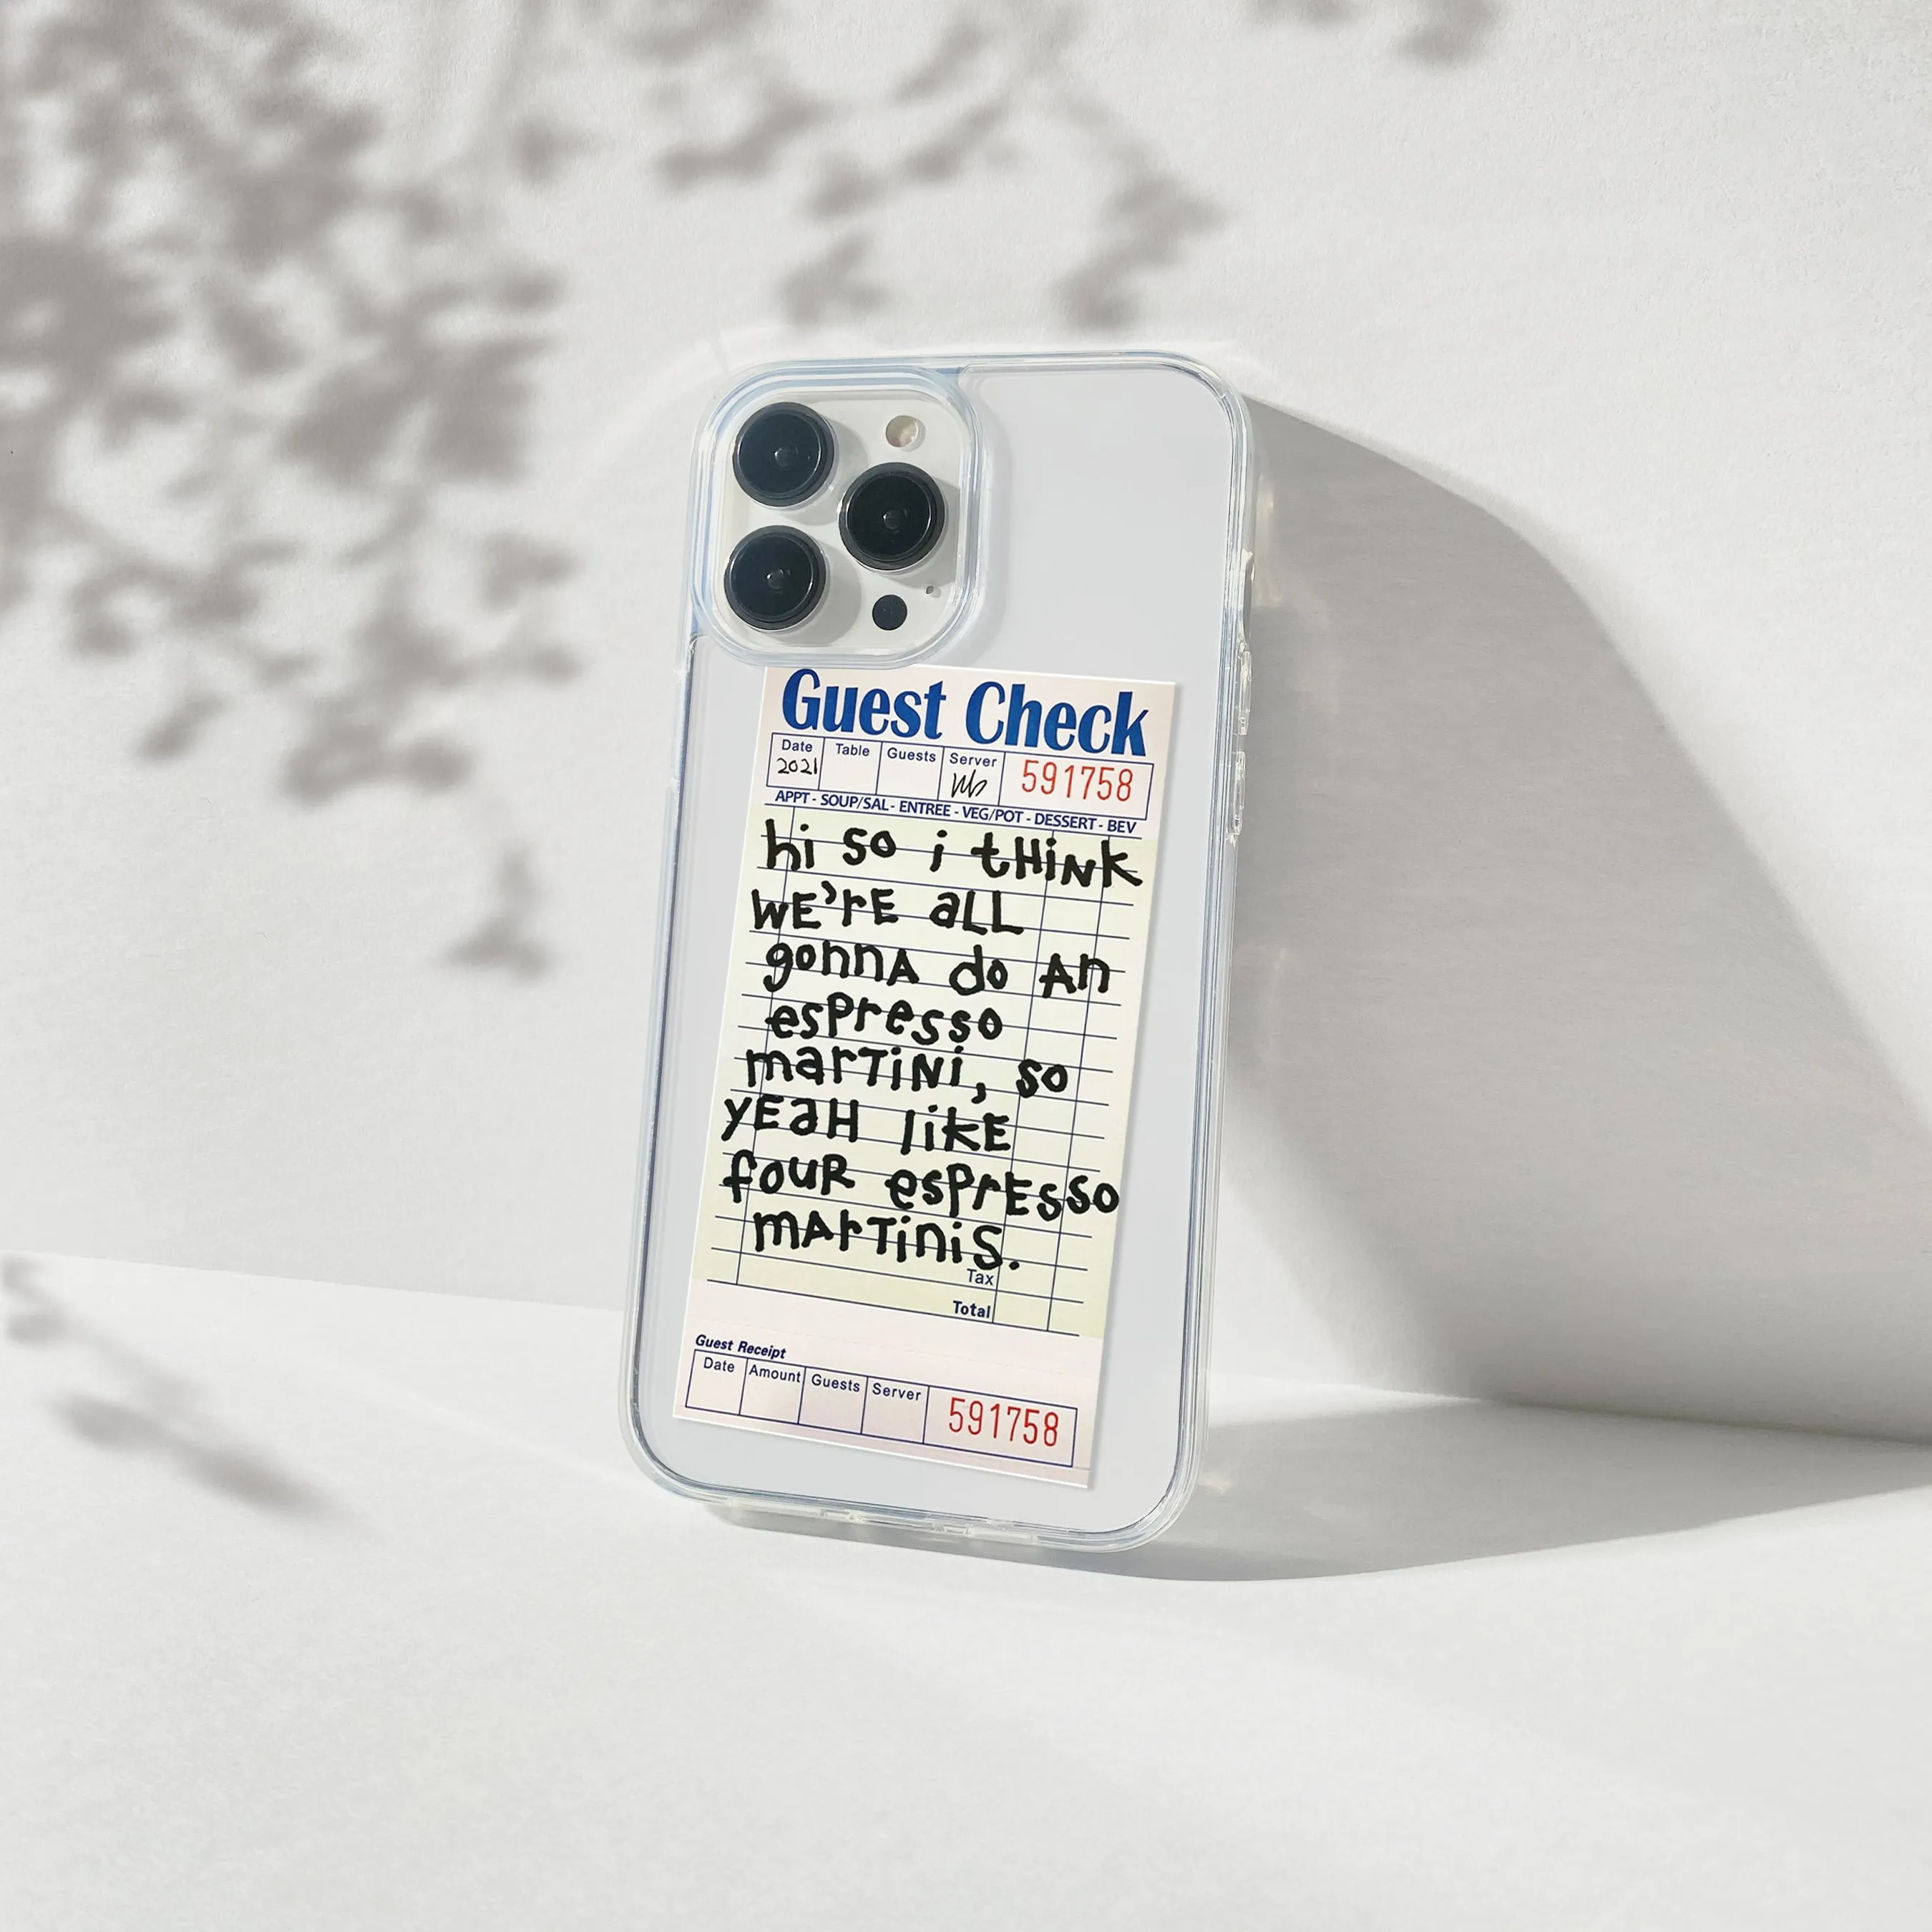 Guest Check
Date Table Guests Server 591758
2021 wb
APPT - SOUP/SAL - ENTREE - VEG/POT - DESSERT - BEV
hi so i tHiNK
WE'rE aLL
gonnA do An
espresso
marTiNi, so
yEaH likE
fouR esprEsso
mArTiniS.
Tax
Total
Guest Receipt
Date Amount Guests Server 591758